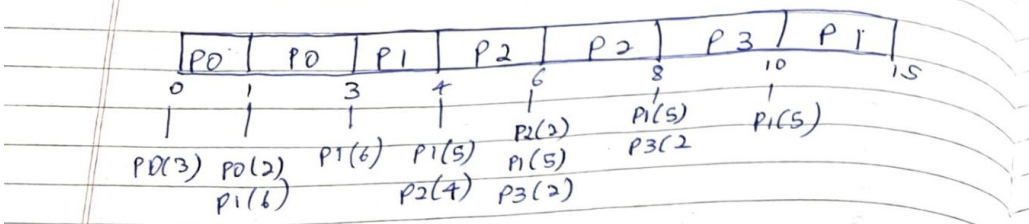 P0 P0 P1 P2 P2 P3 P1
0 1 3 4 6 8 10 15
P0(3) P0(2) P1(6) P1(5) P2(2) P1(5) P1(5)
P1(6) P2(4) P1(5) P3(2
P3(2)